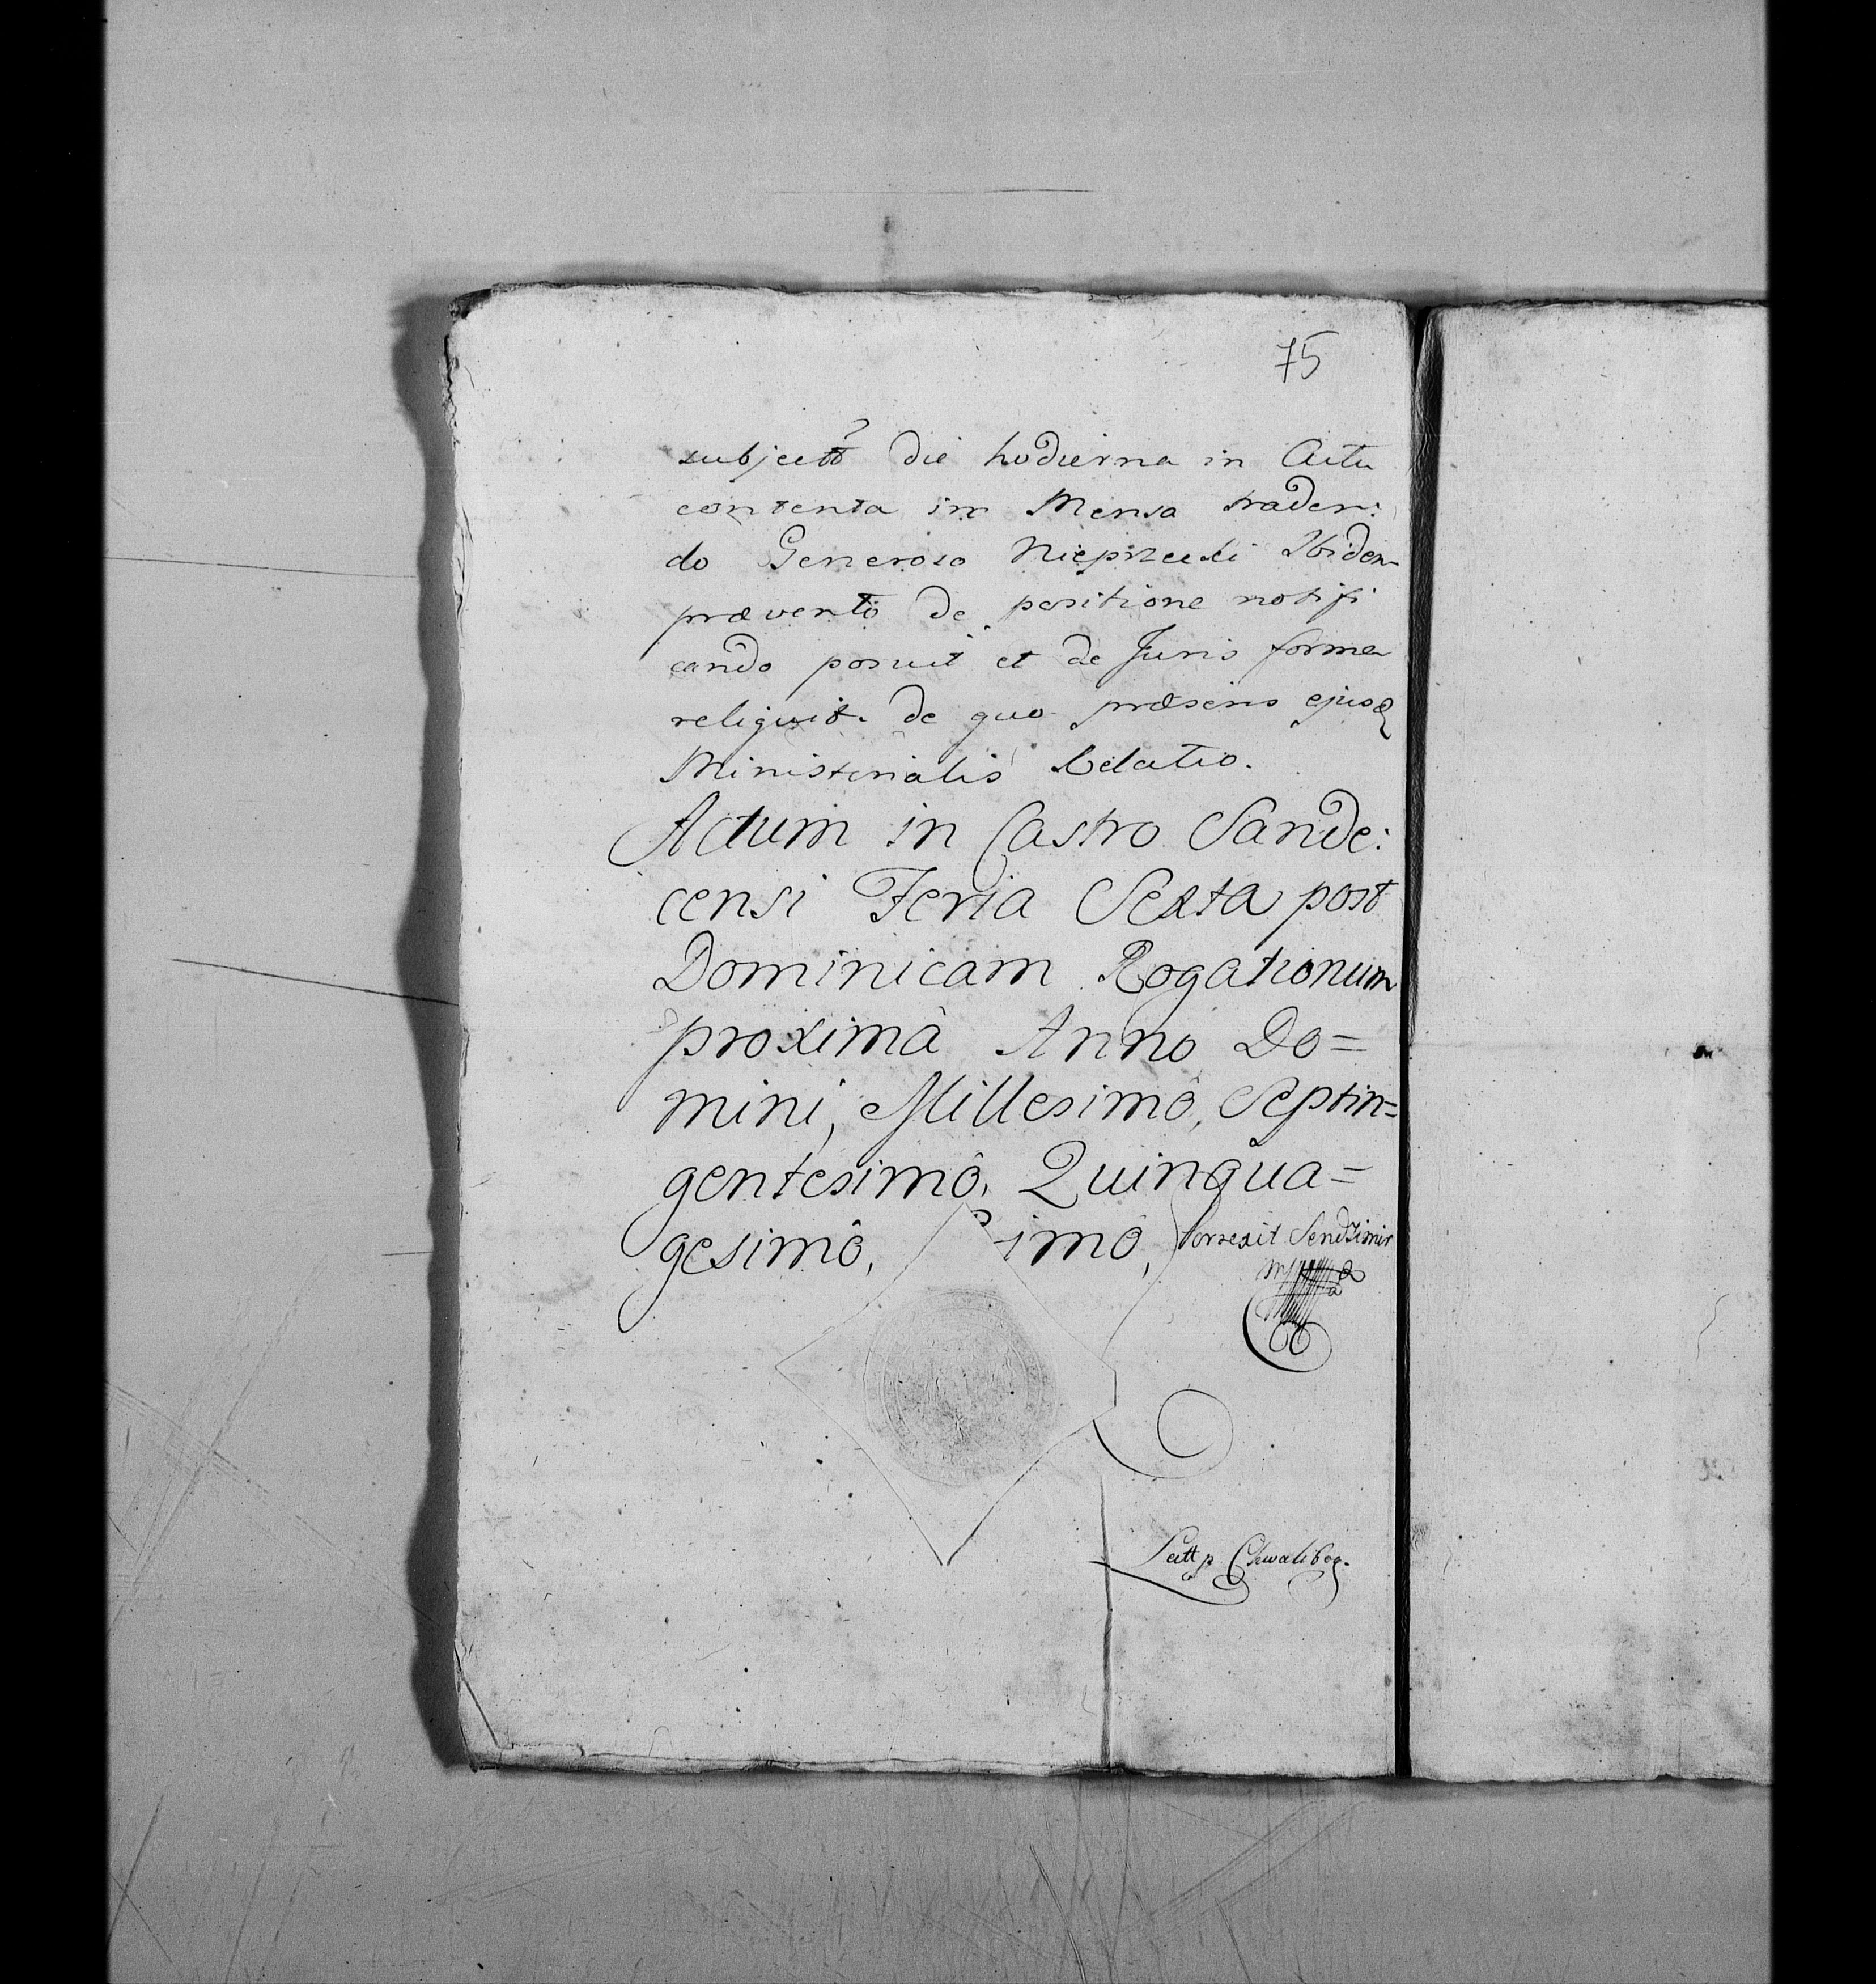 75
subjectô die hodierna in Actu
contenta in Mensa traden:
do Generoso Nieprzecki Ibidem
prævento de positione notifi
cando posuit et de Juris forma
reliquit. de quo præsens ejusq
Ministerialis Relatio.
Actum in Castro Sande:
censi Feria Sexta post
Dominicam Rogationum
proximâ Anno Do=
mini, Millesimô, Septin=
gentesimô, Quinqua=
gesimô, imô, Correxit Sendzimir
Lectt p Chwalibog.